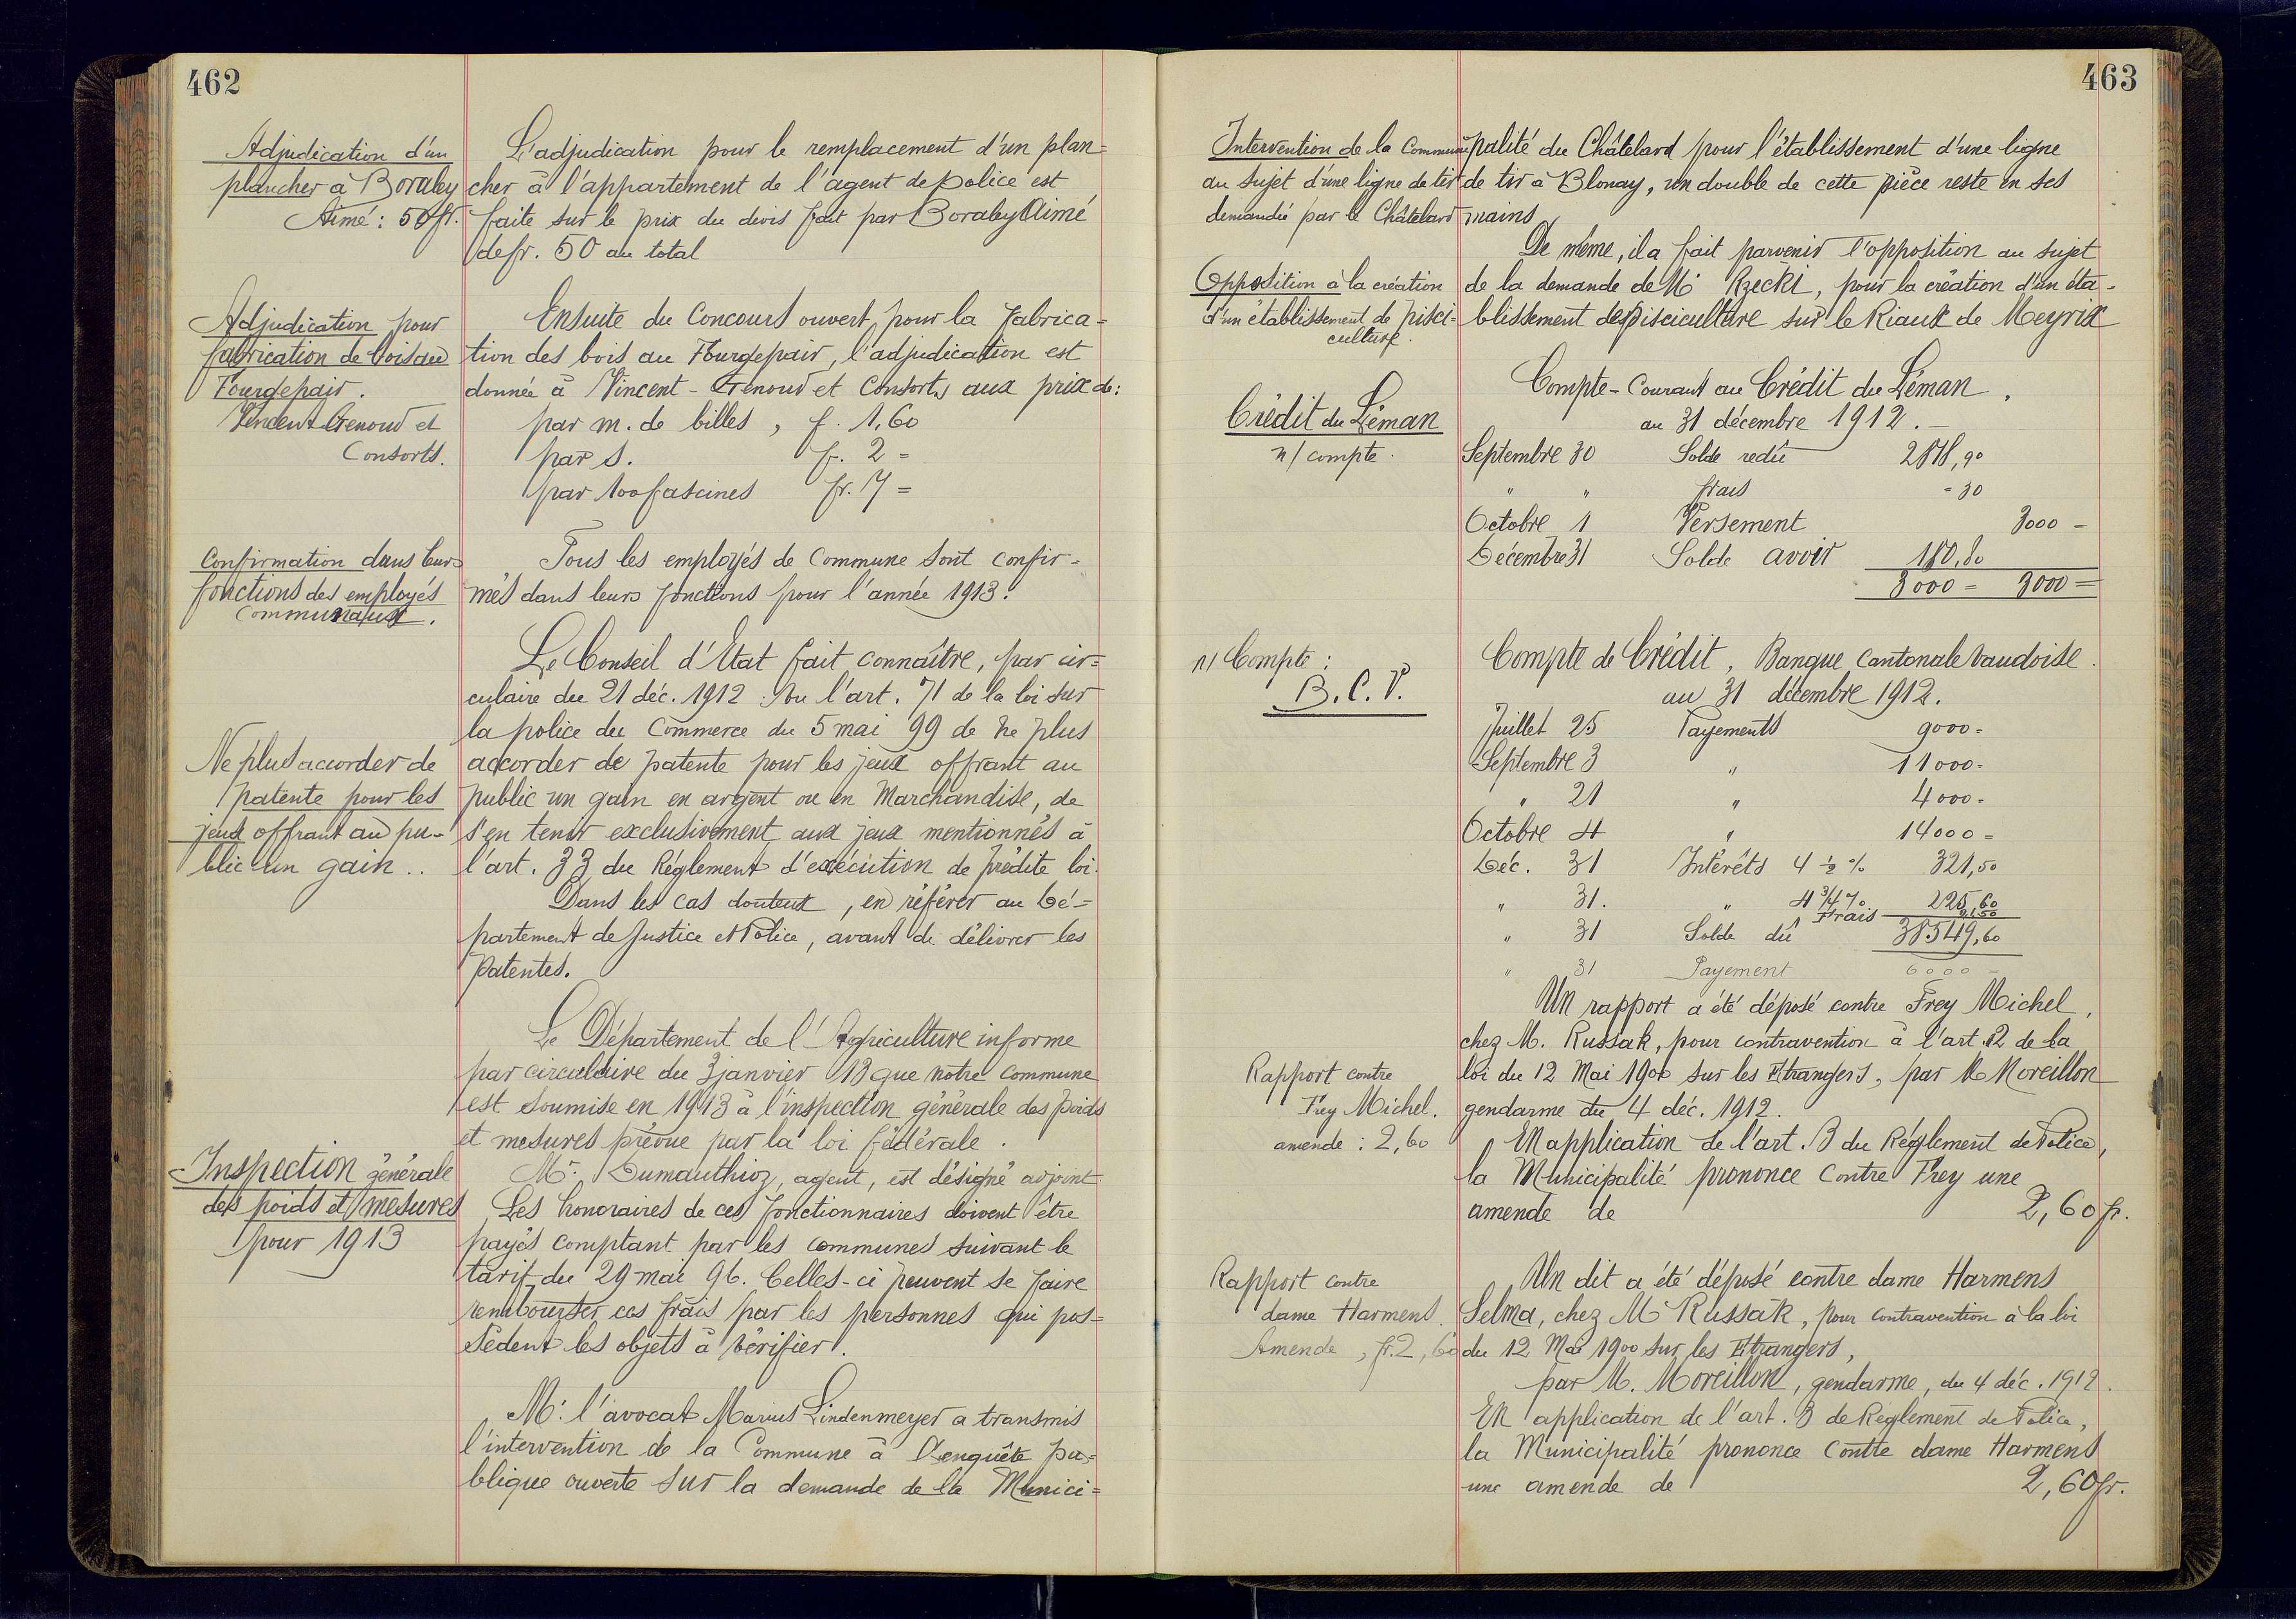 462
Adjudication d'un
plancher à Boraley
Aimé : 50 fr.
L'adjudication pour le remplacement d'un plan=
cher à l'appartement de l'agent de police est
faite sur le prix du devis fait par Boraley Aimé
de fr. 50 au total
Adjudication pour
fabrication de bois au
Fourgepair.
Vincent Genoud et
Consorts.
Ensuite du Concours ouvert, pour la fabrica=
tion des bois au Fourgepair, l'adjudication est
donnée à Vincent-Genoud et Consorts, aux prix de :
par m. de billes, f. 1,60
par s. fr. 2 =
par 100 fascines fr. 7 =
Confirmation dans leurs
fonctions des employés
Communaux.
Tous les employés de Commune sont confir=
més dans leurs fonctions pour l'année 1913.
Le Conseil d'Etat fait connaître, par cir=
culaire du 21 déc. 1912 . Vu l'art. 71 de la loi sur
la police du Commerce du 5 mai 99 de ne plus
accorder de patente pour les jeux offrant au
public un gain en argent ou en Marchandise, de
s'en tenir exclusivement aux jeux mentionnés à
l'art. 33 du Réglement d'exécution de prédite loi.
Dans les cas douteux, en référer au Dé=
partement de Justice et Police, avant de délivrer les
Patentes.
Ne plus accorder de
patente pour les
jeux offrant au pu=
blic un gain..
Le Département de l'Agriculture informe
par circulaire du 3 janvier 13 que notre commune
est soumise en 1913 à l'inspection générale des poids
et mesures prévue par la loi fédérale.
Inspection générale
des poids et mesures
pour 1913
Mr. Dumauthioz, agent, est désigné adjoint
Les honoraires de ces fonctionnaires doivent être
payés comptant par les communes suivant le
tarif du 29 mai 96. Celles-ci peuvent se faire
rembourser ces frais par les personnes qui pos=
sèdent les objets à vérifier.
M. l'avocat Marius Lindenmeyer a transmis
l'intervention de la Commune à l'enquête pu=
blique ouverte sur la demande de la Munici=
463
Intervention de la Commune
au sujet d'une ligne de tir
demandée par le Châtelard
palité du Châtelard pour l'établissement d'une ligne
de tir à Blonay, un double de cette pièce reste en ses
mains
De même, il a fait parvenir l'opposition au sujet
de la demande de M. Rzecki, pour la création d'un éta-
blissement de pisciculture sur le Riaux de Meyrix
Opposition à la création
d'un établissement de pisci-
culture.
Crédit du Léman
n/ compte.
Compte-Courant au Crédit du Léman.
au 31 décembre 1912.
Septembre 30 Solde redû 2818,90
" " frais - 30
Octobre 1 Versement 3000 -
Décembre 31 Solde avoir 180,80
3000 = 3000 =
n/ Compte :
B. C. V.
Compte de Crédit, Banque Cantonale Vaudoise.
au 31 décembre 1912.
Juillet 25 Payements 9000-
Septembre 3 " 11000-
" 21 " 4000-
Octobre 4 " 14000=
Déc. 31 Intérêts 4 ½ % 321,50
" 31. " 4 3/4 % 225,60
Frais
" 31 Solde dû 38549,60
" 31 Payement 6000 -
Rapport contre
Frey Michel.
amende : 2,60
Un rapport a été déposé contre Frey Michel,
chez M. Russak, pour contravention à l'art. 2 de la
loi du 12 Mai 1900 sur les Etrangers, par M Moreillon
gendarme du 4 déc. 1912.
En application de l'art. 3 du Réglement de Police,
la Municipalité prononce contre Frey une
amende de 2,60 fr.
Rapport contre
dame Harmens.
Amende, fr. 2,60
Un dit a été déposé contre dame Harmens
Selma, chez M Russak, pour contravention à la loi
du 12 Mai 1900 sur les Etrangers,
par M. Moreillon, gendarme, du 4 déc. 1912.
En application de l'art. 3 de Réglement de Police,
la Municipalité prononce contre dame Harmens
une amende de 2,60 fr.